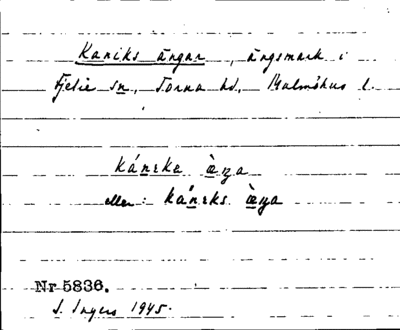 Kaniks ängar, ängsmark i
Fjelie sn, Torna hd, Malmöhus l.
kánɪka æ̀ŋa
eller: kánɪks æ̀ŋa
Nr 5836.
I. Ingers 1945.